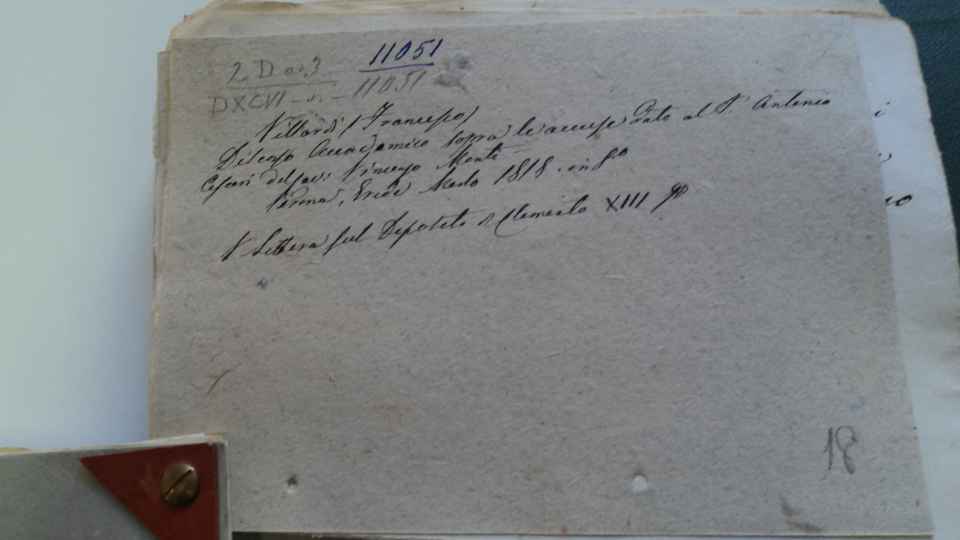 2. D o. 3 11051
DXCVI - . - 11051
Villardi (Francesco)
Discorso Accademico sopra le accuse date al P. Antonio
Cesari del Cav. Vincenzo Monti
Verona, Erede Merlo 1818. in 8º
V. Lettera sul Deposito di Clemente XIII
18